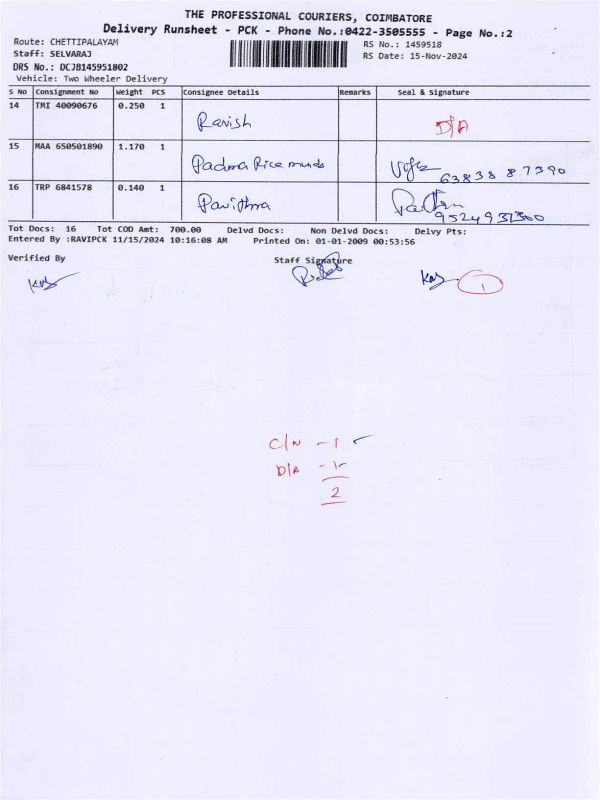 THE PROFESSIONAL COURIERS, COIMBATORE
Delivery Runsheet - PCK - Phone No.:0422-3505555 - Page No.:2
Route: CHETTIPALAYAM
RS No.: 1459518
Staff: SELVARAJ
RS Date: 15-Nov-2024
DRS No.: DCJB145951802
Vehicle: Two Wheeler Delivery
S No Consignment No Weight PCS Consignee Details Remarks Seal & Signature
14 TMI 40090676 0.250 1 Ravish D/A
15 MAA 650501890 1.170 1 Padma Rice mundi 63838 87390
16 TRP 6841578 0.140 1 Pavithra 9524931300
Tot Docs: 16 Tot COD Amt: 700.00 Delvd Docs: Non Delvd Docs: Delvy Pts:
Entered By :RAVIPCK 11/15/2024 10:16:08 AM Printed On: 01-01-2009 00:53:56
Verified By Staff Signature
1
C/N - 1
D/A - 1
2